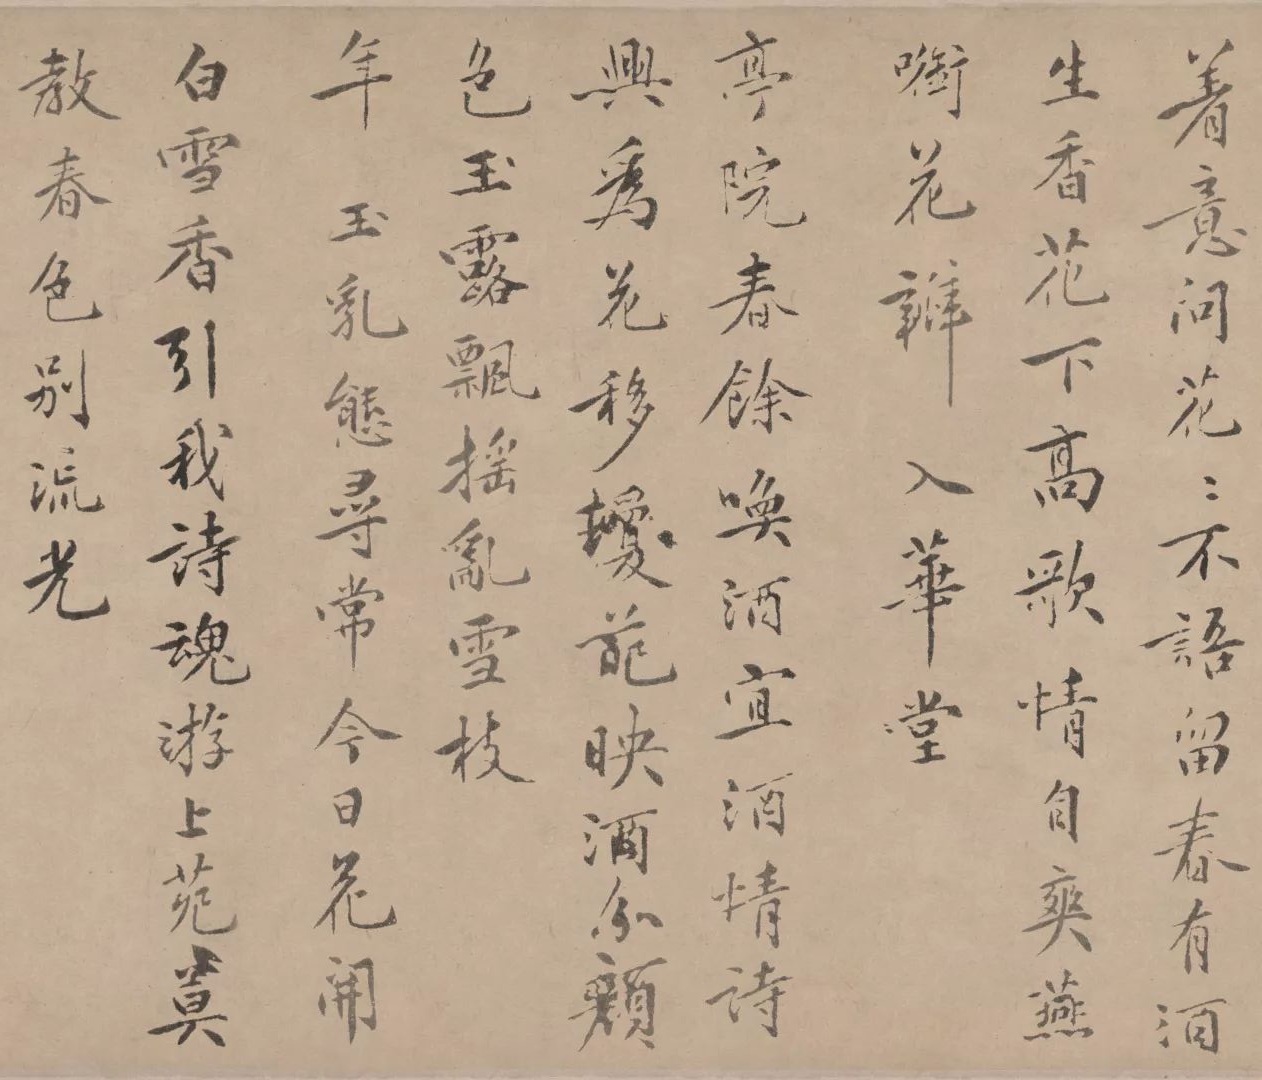 着意问花〻不語留春有酒
生香花下高歌情自爽燕
啣花瓣入華堂
亭院春餘喚酒宜酒情詩
興爲花移攙花映酒分顏
色玉露飄摇亂雪枝
年玉乳態尋常今日花開
白雪香引我詩魂游上苑莫
教春色別流光